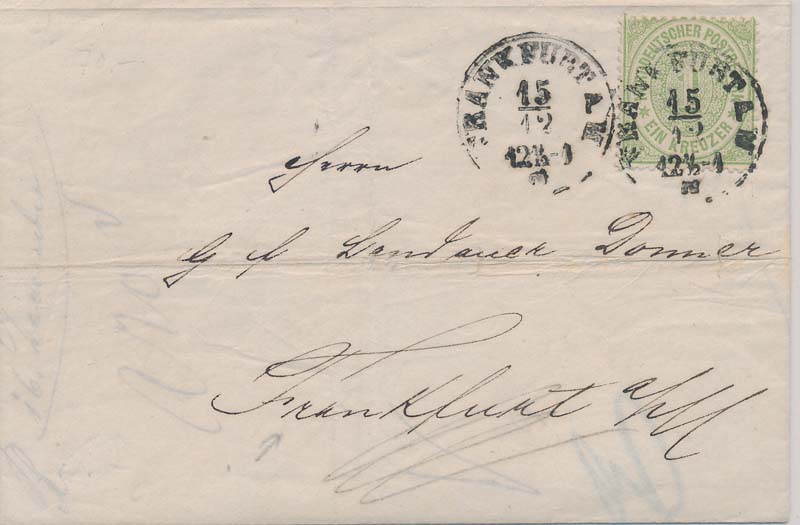 FRANKFURT A M
15
12
12½-1
NORDDEUTSCHER POSTBEZIRK
1
EIN KREUZER
FRANKFURT A M
15
12
12½-1
Herrn
G f Landauer Donner
Frankfurt a/M